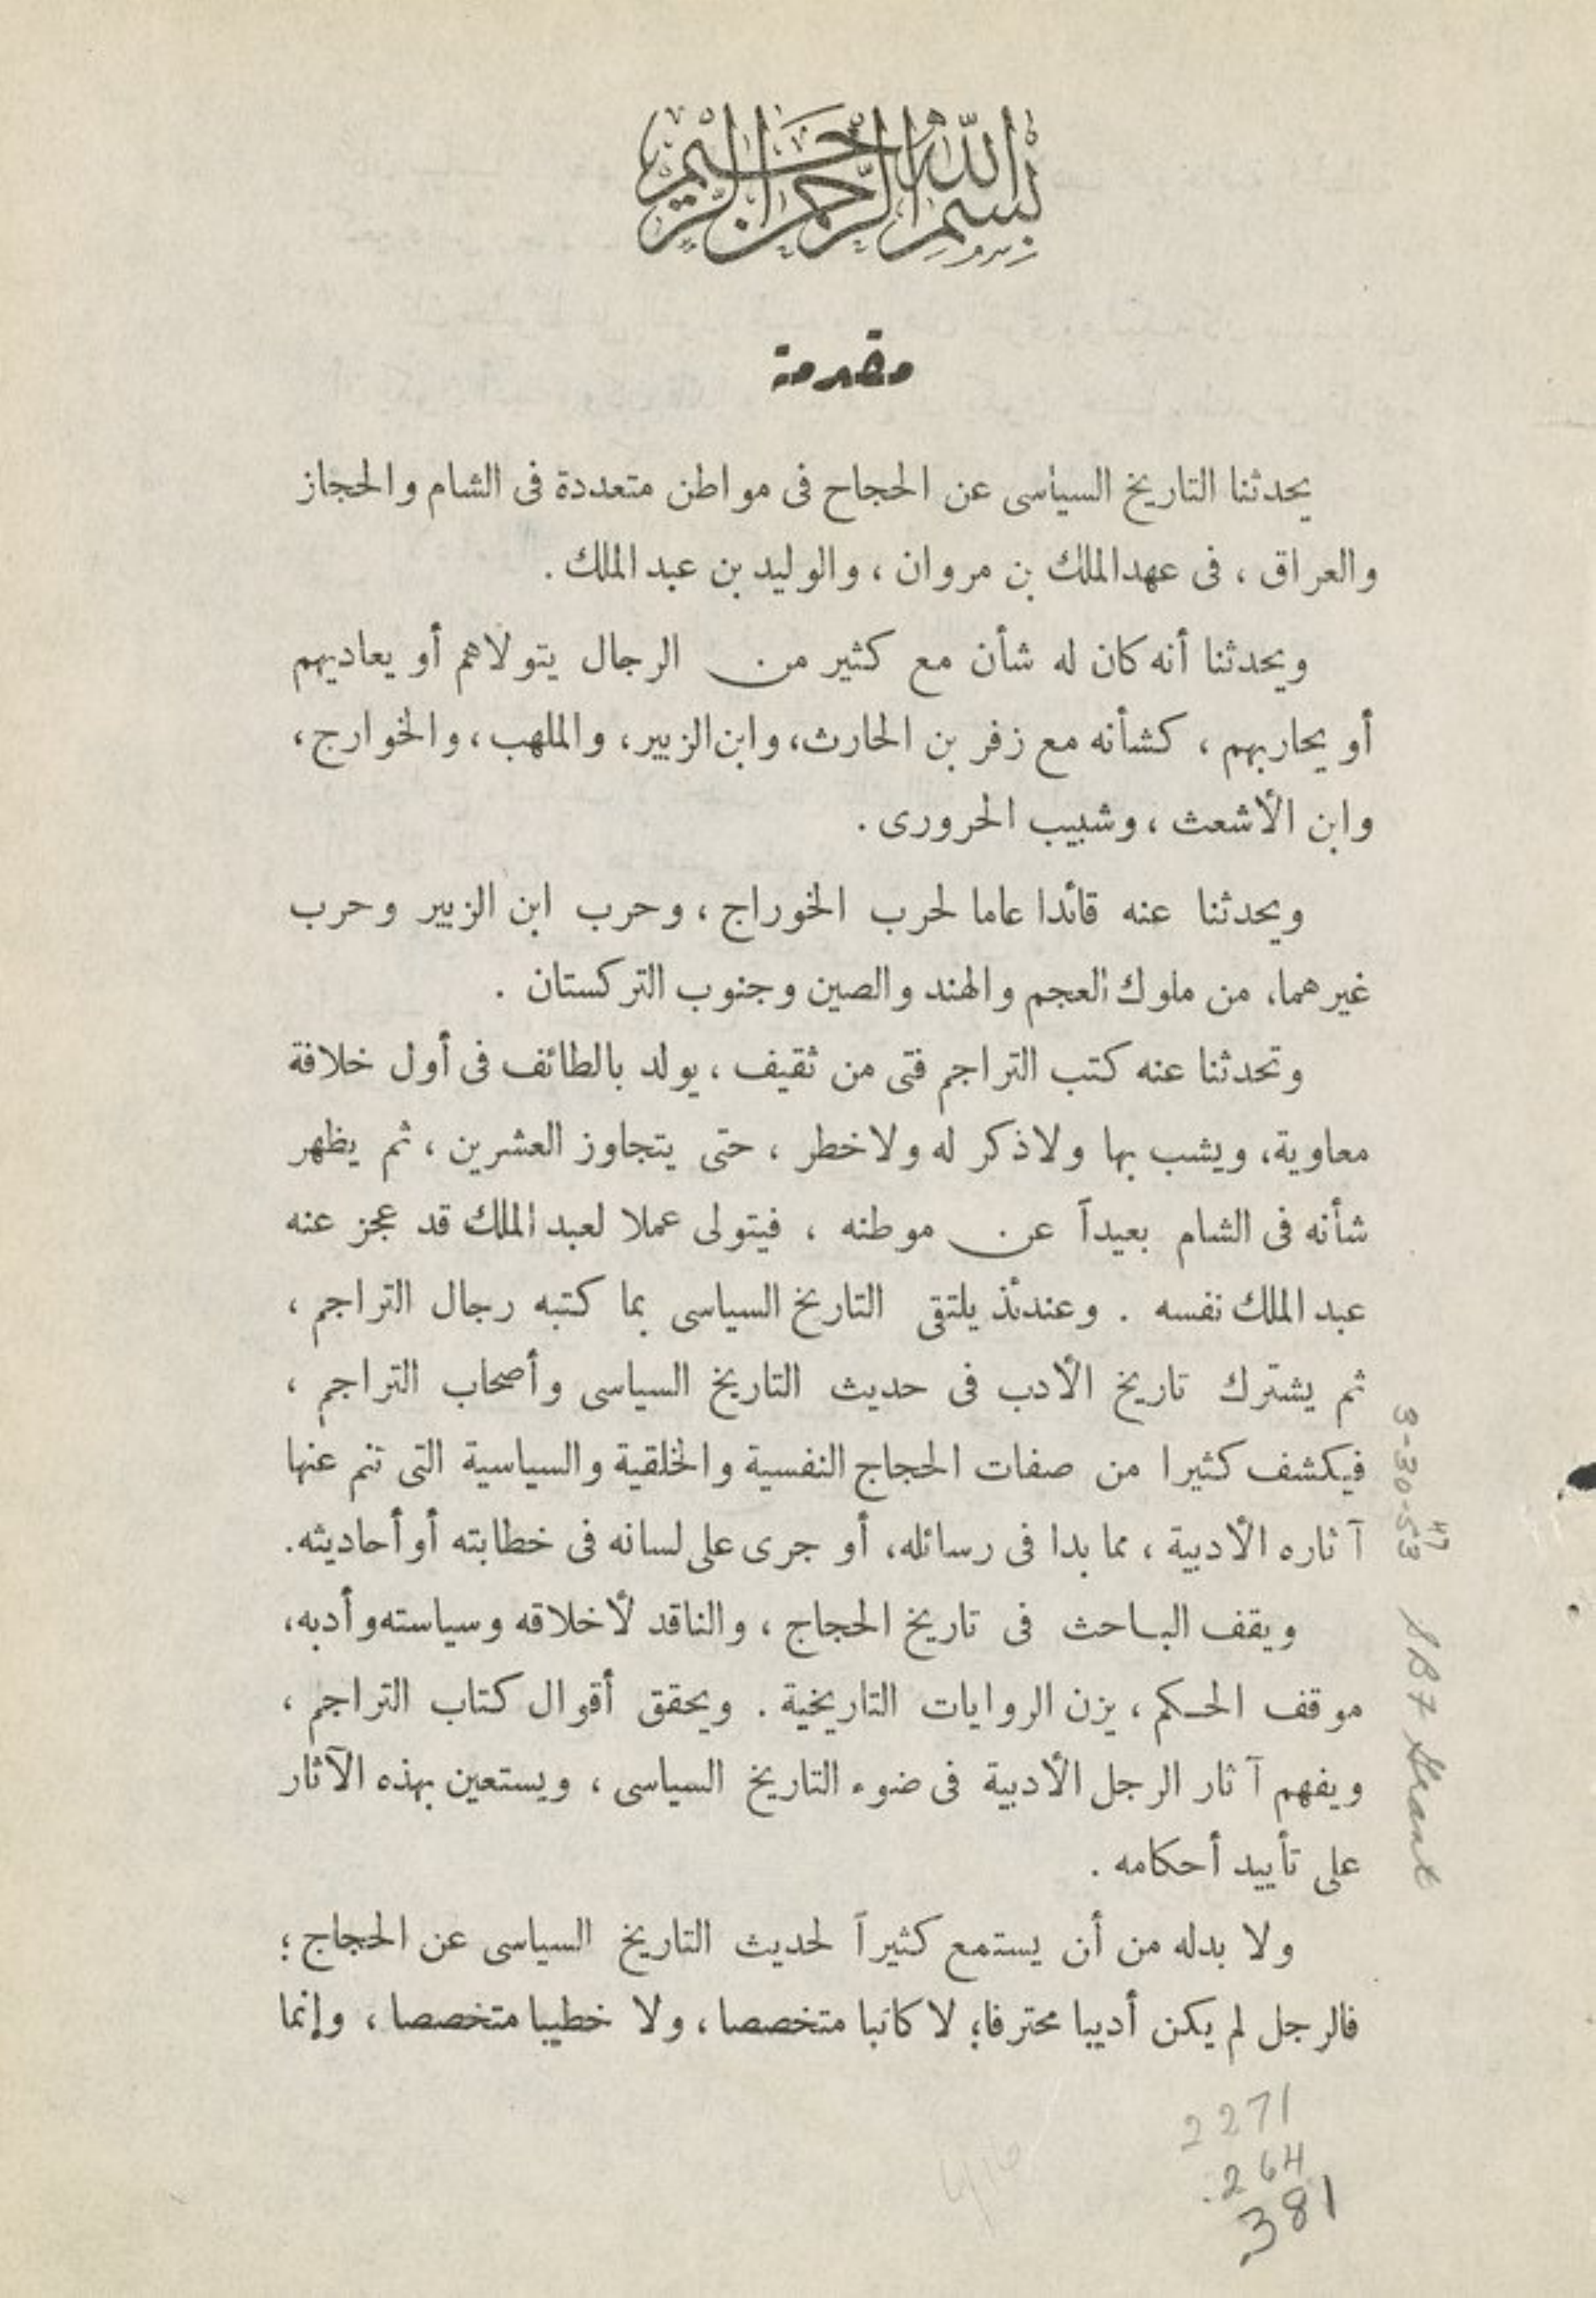 بسم الله الرحمن الرحيم
مقدمة
يحدثنا التاريخ السياسى عن الحجاج فى مواطن متعددة فى الشام والحجاز
والعراق ، فى عهد الملك بن مروان ، والوليد بن عبد الملك .
ويحدثنا أنه كان له شأن مع كثير من الرجال يتولاهم أو يعاديهم
أو يحاربهم ، كشأنه مع زفر بن الحارث، وابن الزبير، والملهب، والخوارج،
وابن الأشعث ، وشبيب الحرورى .
ويحدثنا عنه قائدا عاما لحرب الخوراج ، وحرب ابن الزبير وحرب
غيرهما، من ملوك العجم والهند والصين وجنوب التركستان .
وتحدثنا عنه كتب التراجم فتى من ثقيف ، يولد بالطائف فى أول خلافة
معاوية، ويشب بها ولا ذكر له ولا خطر ، حتى يتجاوز العشرين ، ثم يظهر
شأنه فى الشام بعيداً عن موطنه ، فيتولى عملا لعبد الملك قد عجز عنه
عبد الملك نفسه . وعندئذ يلتقى التاريخ السياسى بما كتبه رجال التراجم ،
ثم يشترك تاريخ الأدب فى حديث التاريخ السياسى وأصحاب التراجم ،
فيكشف كثيرا من صفات الحجاج النفسية والخلقية والسياسية التى تنم عنها
آثاره الأدبية ، مما بدا فى رسائله، أو جرى على لسانه فى خطابته أو أحاديثه.
ويقف الباحث فى تاريخ الحجاج ، والناقد لأخلاقه وسياسته وأدبه،
موقف الحكم ، يزن الروايات التاريخية . ويحقق أقوال كتاب التراجم ،
ويفهم آثار الرجل الأدبية فى ضوء التاريخ السياسى ، ويستعين بهذه الآثار
على تأييد أحكامه .
ولا بدله من أن يستمع كثيراً لحديث التاريخ السياسى عن الحجاج ؛
فالرجل لم يكن أديبا محترفا؛ لا كاتبا متخصصا، ولا خطيبا متخصصا ، وإنما
3-30-53 47 SB7 Grant
2271
.264
.381